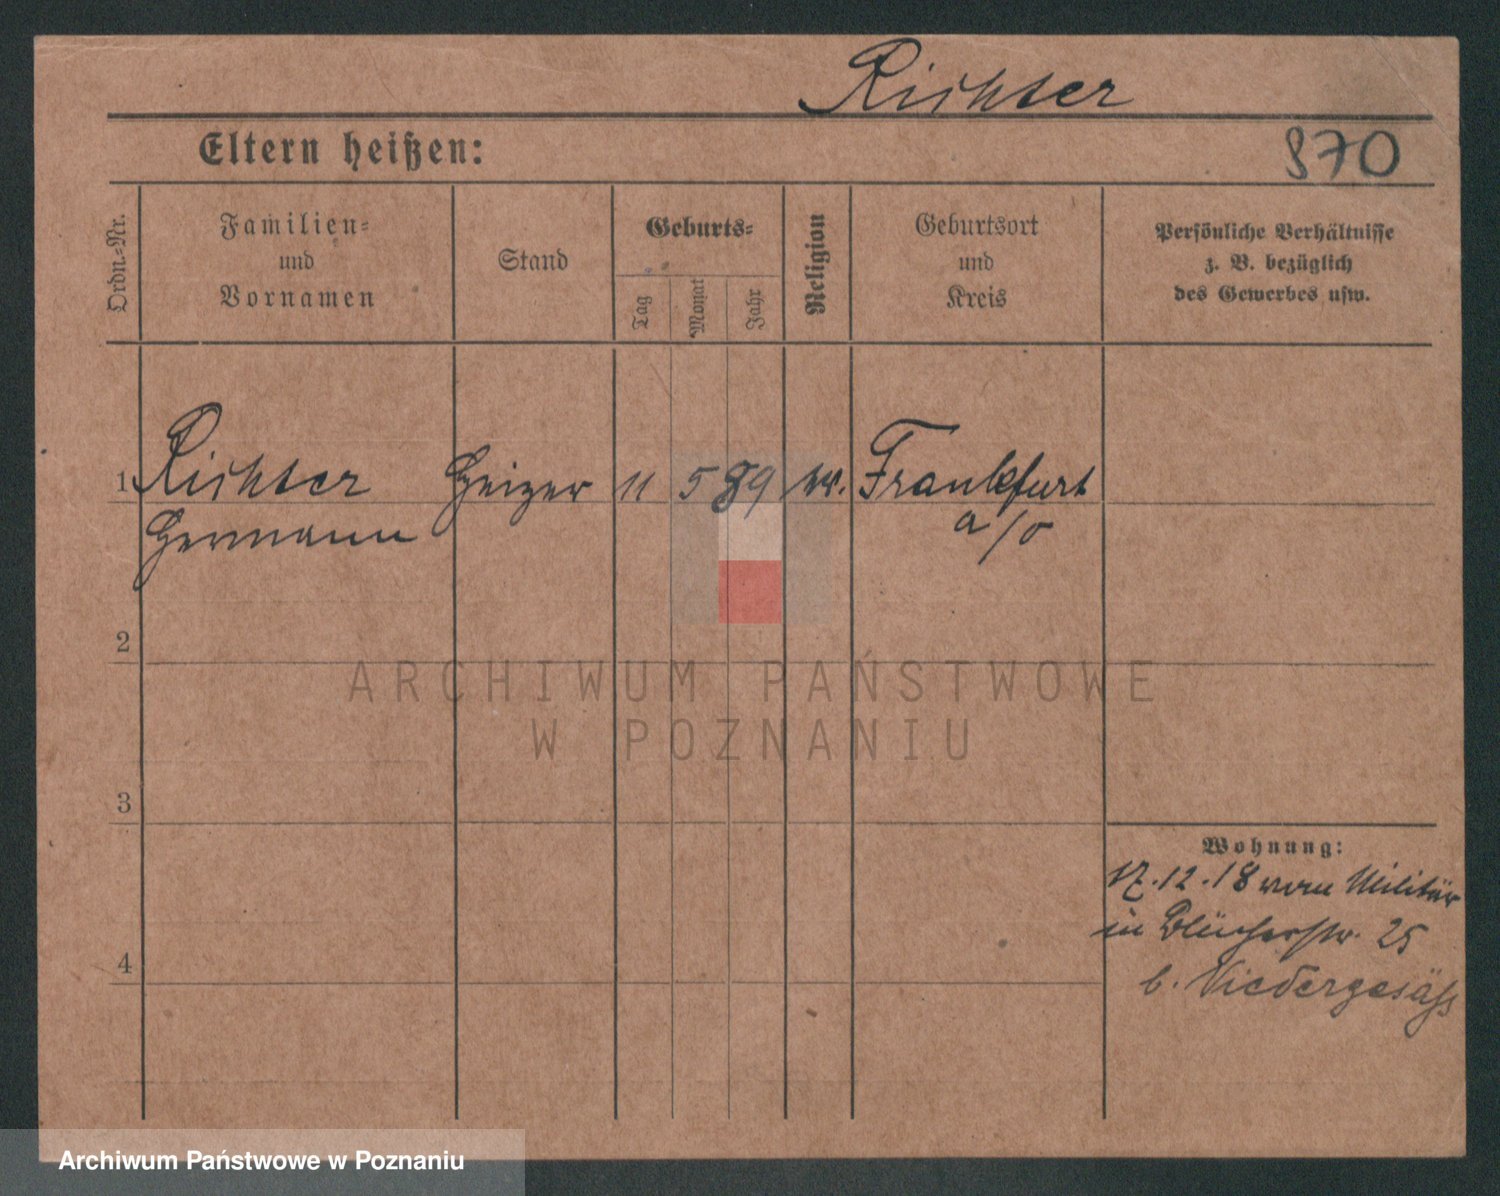 Richter
Eltern heißen:
870
Ordn.-Nr.
Familien-
und
Vornamen
Stand
Geburts-
Tag
Monat
Jahr
Religion
Geburtsort
und
Kreis
Persönliche Verhältnisse
z. B. bezüglich
des Gewerbes usw.
1 Richter Heizer 11 5 89 Frankfurt
Hermann a/o
2
ARCHIWUM PAŃSTWOWE
W POZNANIU
3
Wohnung:
17.12.18 vom Militär
in Blücherstr. 25
b. Niedergesäss
4
Archiwum Państwowe w Poznaniu